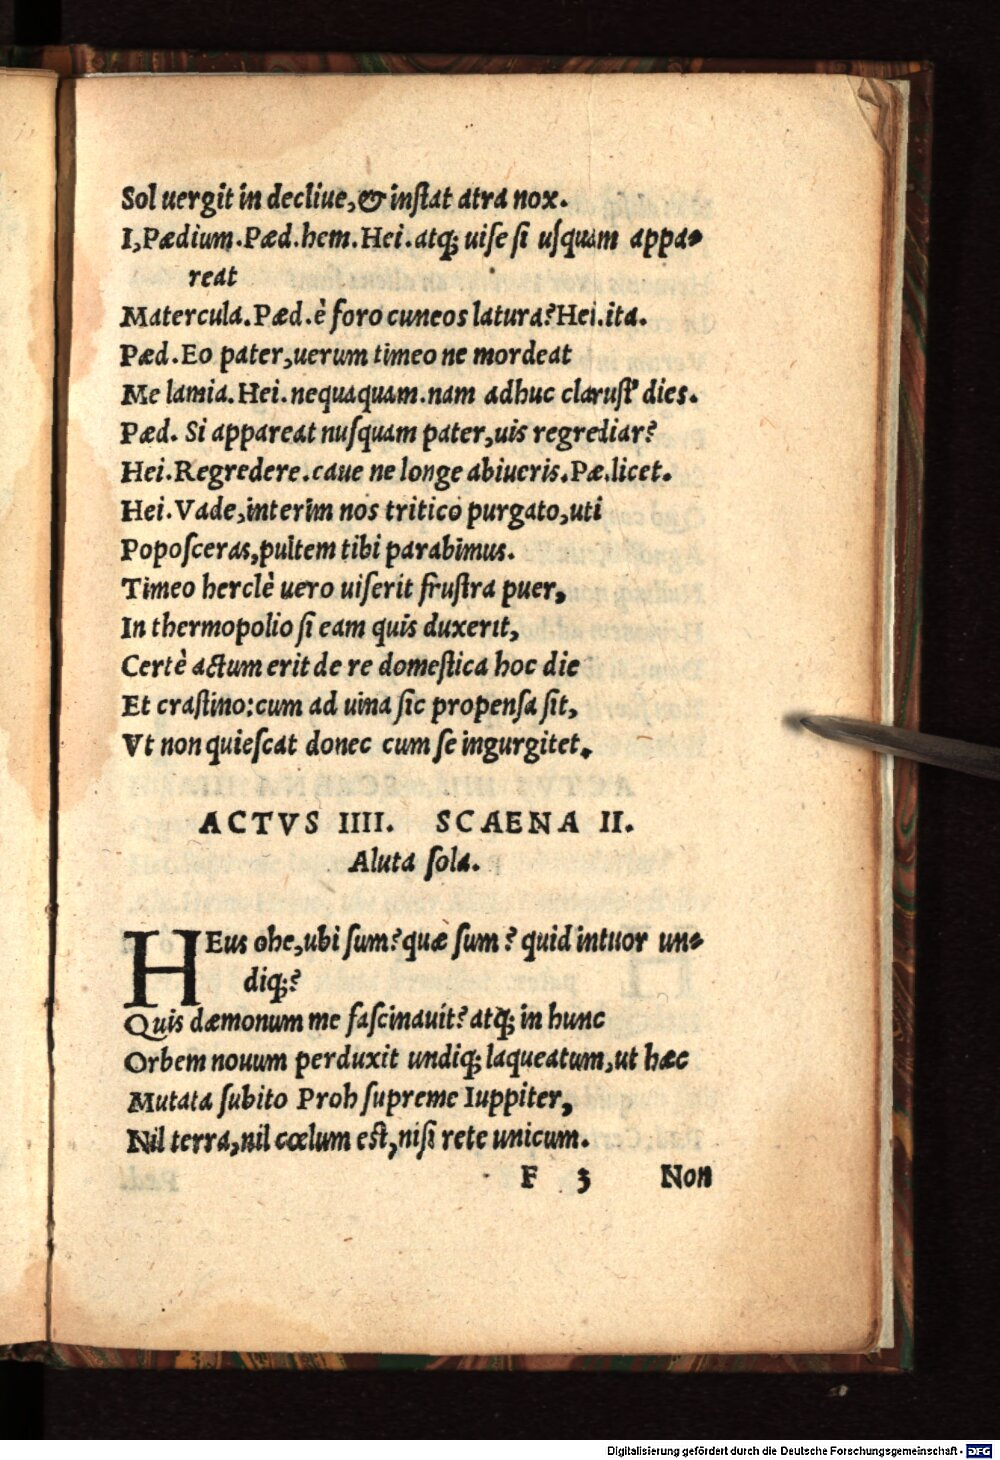 Sol uergit in decliue, & inſtat atra nox.
I, Pædium. Pæd. hem. Hei. atq; uiſe ſi uſquam appa-
reat
Matercula. Pæd. è foro cuneos latura? Hei. ita.
Pæd. Eo pater, uerum timeo ne mordeat
Me lamia. Hei. nequaquam. nam adhuc claruſt' dies.
Pæd. Si appareat nuſquam pater, uis regrediar?
Hei. Regredere. caue ne longe abiueris. Pæ. licet.
Hei. Vade, interim nos tritico purgato, uti
Popoſceras, pultem tibi parabimus.
Timeo herclè uero uiſerit fruſtra puer,
In thermopolio ſi eam quis duxerit,
Certè actum erit de re domeſtica hoc die
Et craſtino: cum ad uina ſic propenſa ſit,
Vt non quieſcat donec cum ſe ingurgitet.
ACTVS IIII. SCAENA II.
Aluta ſola.
HEus ohe, ubi ſum? quæ ſum? quid intuor un-
diq;?
Quis dæmonum me faſcinauit? atq; in hunc
Orbem nouum perduxit undiq; laqueatum, ut hæc
Mutata ſubito Proh ſupreme Iuppiter,
Nil terra, nil cœlum eſt, niſi rete unicum.
F 3 Non
Digitalisierung gefördert durch die Deutsche Forschungsgemeinschaft - DFG